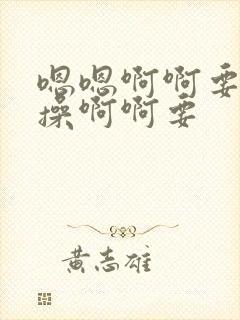 嗯嗯啊啊要
操啊啊要
黄志雄